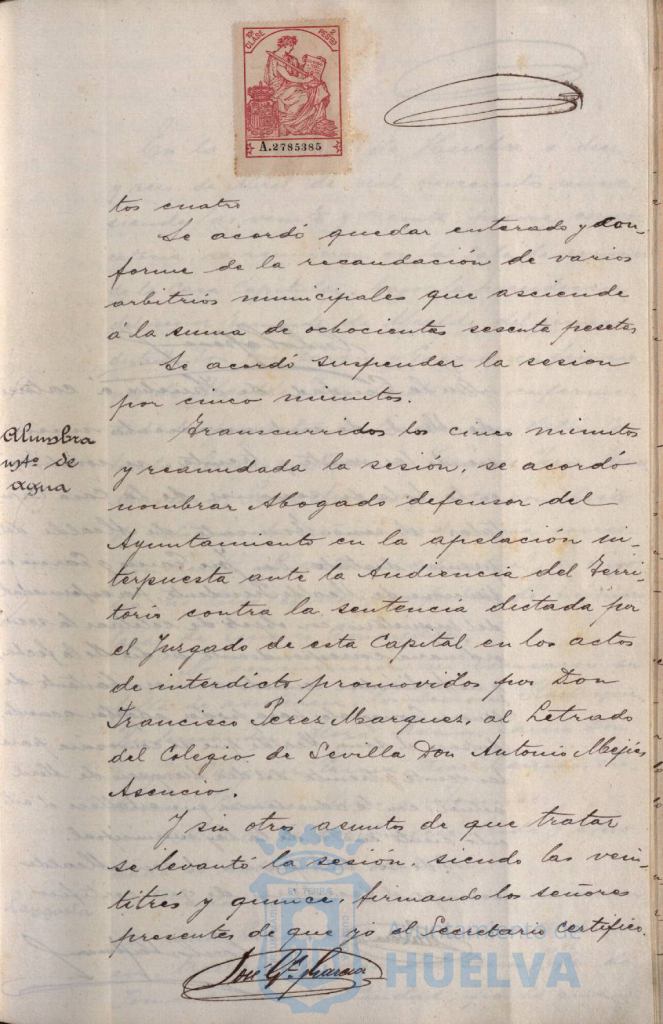 10ª CLASE
2 PESETAS
A.2785385
tos cuatro
Se acordó quedar enterado y con-
forme de la recaudación de varios
arbitrios municipales que asciende
á la suma de ochocientas sesenta pesetas
Se acordó suspender la sesion
por cinco minutos.
Alumbra
mtº de
agua
Transcurridos los cinco minutos
y reanudada la sesión, se acordó
nombrar Abogado defensor del
Ayuntamiento en la apelación in-
terpuesta ante la Audiencia del Terri-
torio contra la sentencia dictada por
el Juzgado de esta Capital en los actos
de interdicto promovidos por Don
Francisco Perez Marquez, al Letrado
del Colegio de Sevilla Don Antonio Mejías
Asencio.
Y sin otros asuntos de que tratar
se levantó la sesión, siendo las vein-
titrés y quince, firmando los señores
presentes de que yo el Secretario certifico.
José Gª Garcia
AYUNTAMIENTO DE
HUELVA